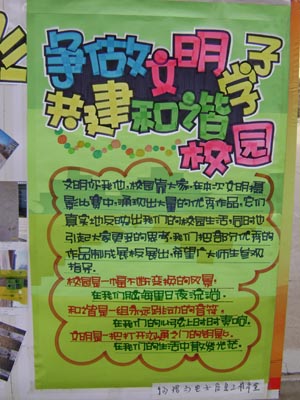 争做文明学子
共建和谐校园
文明你我他，校园靠大家，在本次文明摄
影比赛中，涌现出大量的优秀作品，它们
真实地反映出我们的校园生活，同时也
引起大家更多的思考，我们把部分优秀的
作品制成展板展出，希望广大师生参观
指导。
校园是一幅不断变换的风景，
在我们脑海里日夜流淌，
和谐是一组永远跳动的音符，
在我们的心弦上时时奏响，
文明是一把打开沟通之门的钥匙，
在我们的生活中散发光芒。